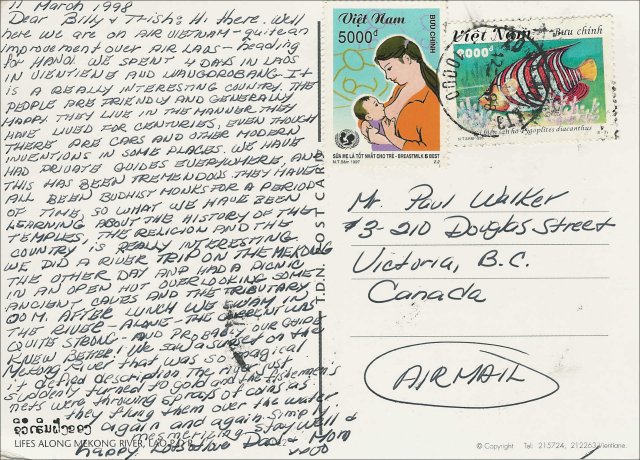 11 March 1998
Dear Billy & Trish: Hi there. Well
here we are on AIR VIETNAM - quite an
improvement over AIR LAOS - heading
for HANOI. WE SPENT 4 DAYS IN LAOS
IN VIENTIENE AND LUANGPROBANG. IT
IS A REALLY INTERESTING COUNTRY. THE
PEOPLE ARE FRIENDLY AND GENERALLY
HAPPY. THEY LIVE IN THE MANNER THEY
HAVE LIVED FOR CENTURIES, EVEN THOUGH
THERE ARE CARS AND OTHER MODERN
INVENTIONS IN SOME PLACES. WE HAVE
HAD PRIVATE GUIDES EVERYWHERE, AND
THIS HAS BEEN TREMENDOUS THEY HAVE
ALL BEEN BUDHIST MONKS FOR A PERIOD
OF TIME, SO WHAT WE HAVE BEEN
LEARNING ABOUT THE HISTORY OF THE
TEMPLES, THE RELIGION AND THE
COUNTRY IS REALLY INTERESTING.
WE DID A RIVER TRIP ON THE MEKONG
THE OTHER DAY AND HAD A PICNIC
IN AN OPEN HUT OVERLOOKING SOME
ANCIENT CAVES AND THE TRIBUTARY
OO M. AFTER LUNCH WE SWAM IN
THE RIVER - ALONE - THE CURRENT WAS
QUITE STRONG - AND PROBABLY OUR GUIDE
KNEW BETTER! We saw a sunset on the
Mekong River that was so magical
it defied description. The river just
suddenly turned to gold and the fishermen's
nets were throwing sprays of coins as
they flung them over the water
again and again. Simply
mesmerizing. Stay well &
happy. Lots of love Dad & Mom
xoxo
LIFES ALONG MEKONG RIVER, LAO P.D.R
T.D.A. POST CARD
Việt Nam
5000đ
BƯU CHÍNH
SỮA MẸ LÀ TỐT NHẤT CHO TRẺ - BREASTMILK IS BEST
N.T.Sâm 1997
2.2
Việt Nam
Bưu chính
Pygoplites diacanthus
Mr. Paul Walker
#3-210 Douglas Street
Victoria, B.C.
Canada
AIRMAIL
© Copyright Tel: 215724, 212263 Vientiane.